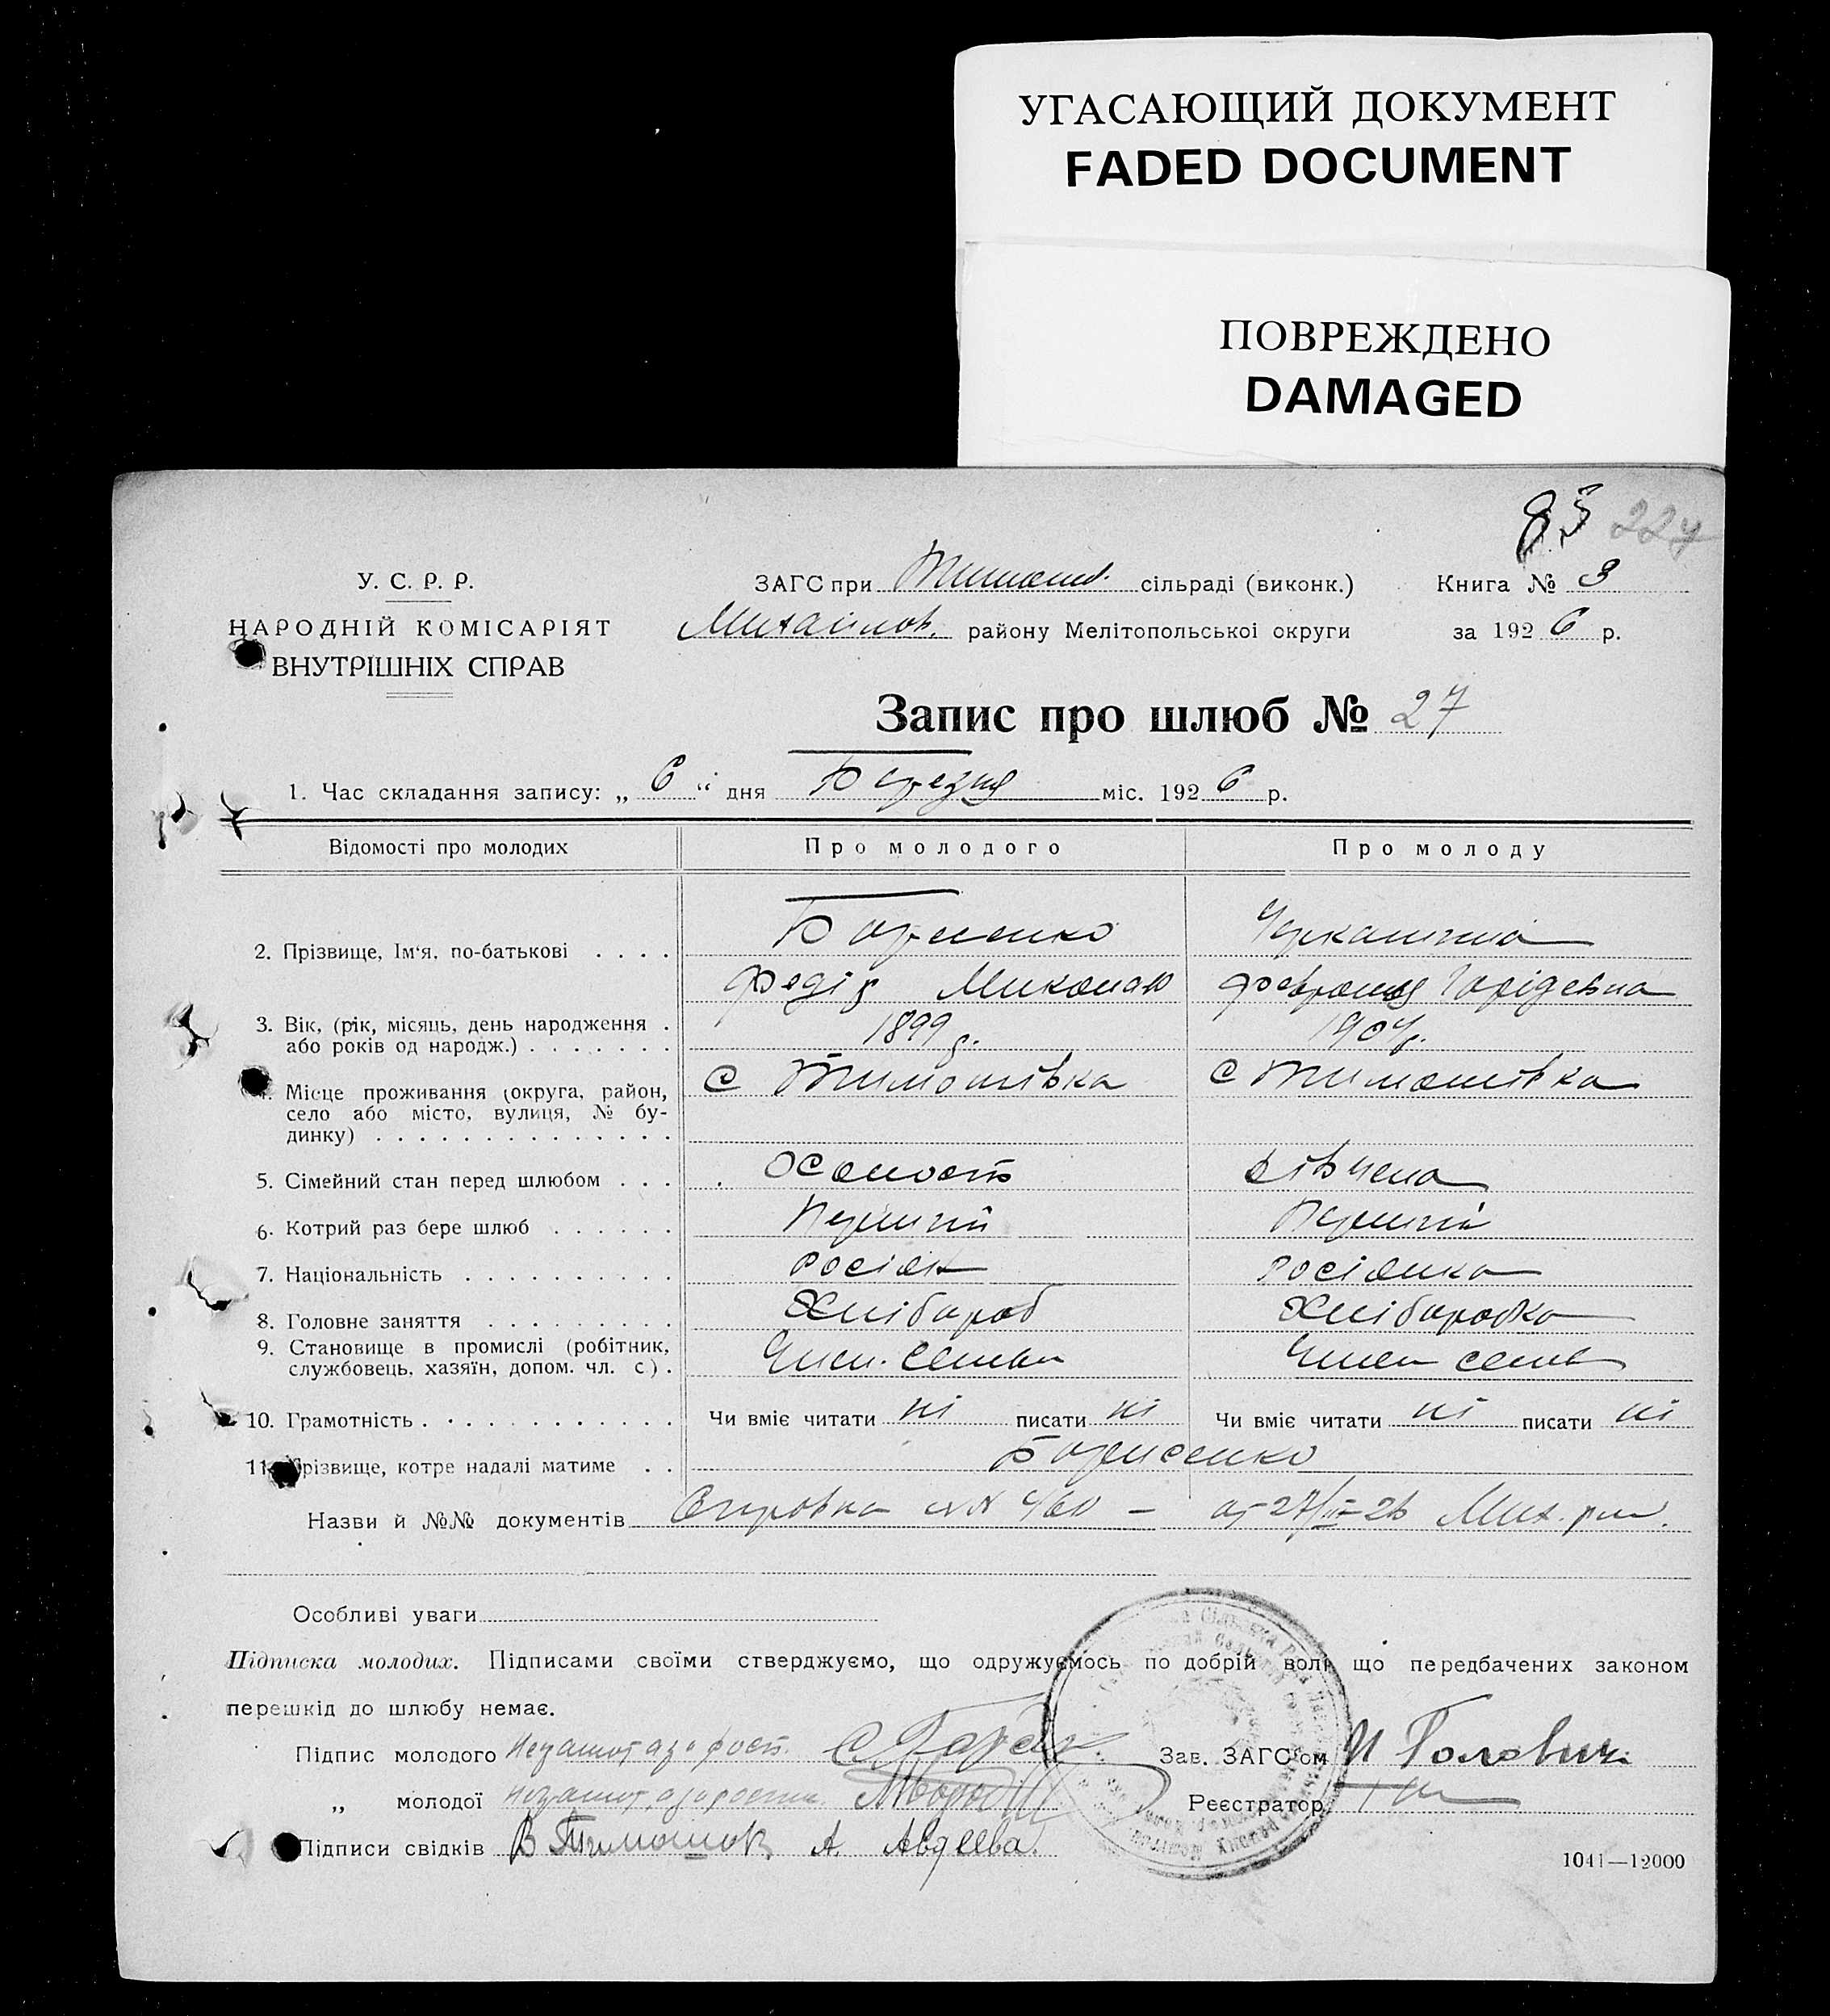 УГАСАЮЩИЙ ДОКУМЕНТ
FADED DOCUMENT
ПОВРЕЖДЕНО
DAMAGED
83 227
У. С. Р. Р.
НАРОДНІЙ КОМІСАРІЯТ
ВНУТРІШНІХ СПРАВ
ЗАГС при Тимош. сільраді (виконк.) Книга № 3
Михайлов. району Мелітопольської округи за 1926 р.
Запис про шлюб № 27
1. Час складання запису: „ 6 “ дня Березня міс. 1926 р.
Відомості про молодих Про молодого Про молоду
2. Прізвище, Ім'я, по-батькові . . . . Борисенко Черкашина
Федір Микола Февронія
3. Вік, (рік, місяць, день народження . 1899 р. 1904 р.
або років од народж.) . . . . . . .
Місце проживання (округа, район, с Тимошівка с Тимошівка
село або місто, вулиця, № бу-
динку) . . . . . . . . . . . . . .
5. Сімейний стан перед шлюбом . . . дівчена
6. Котрий раз бере шлюб . . . . . . Перший Перший
7. Національність . . . . . . . . . . росіян росіянка
8. Головне заняття . . . . . . . . . Хлібороб Хліборобка
9. Становище в промислі (робітник, Член. семьи Член семьи
службовець, хазяїн, допом. чл. с) .
10. Грамотність . . . . . . . . . . . . Чи вміє читати ні писати ні Чи вміє читати ні писати ні
11. Прізвище, котре надалі матиме . . Борисенко
Назви й №№ документів Мих.
Особливі уваги
Підписка молодих. Підписами своїми стверджуємо, що одружуємось по добрій волі що передбачених законом
перешкід до шлюбу немає.
Підпис молодого Зав. ЗАГС'ом И Головин
„ молодої Реєстратор
Підписи свідків В Тимошок А. Авдеева.
1041—12000